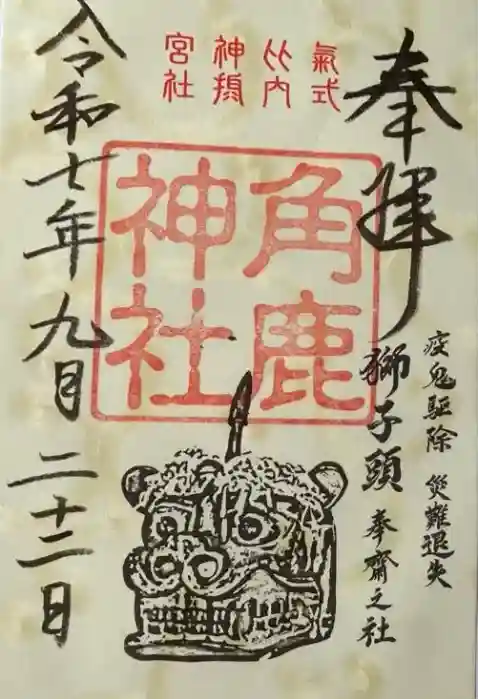 奉拝
氣式
比内
神鵄
宮社
角鹿
神社
疫鬼駆除 災難退失
獅子頭 奉齋之社
令和七年九月二十二日